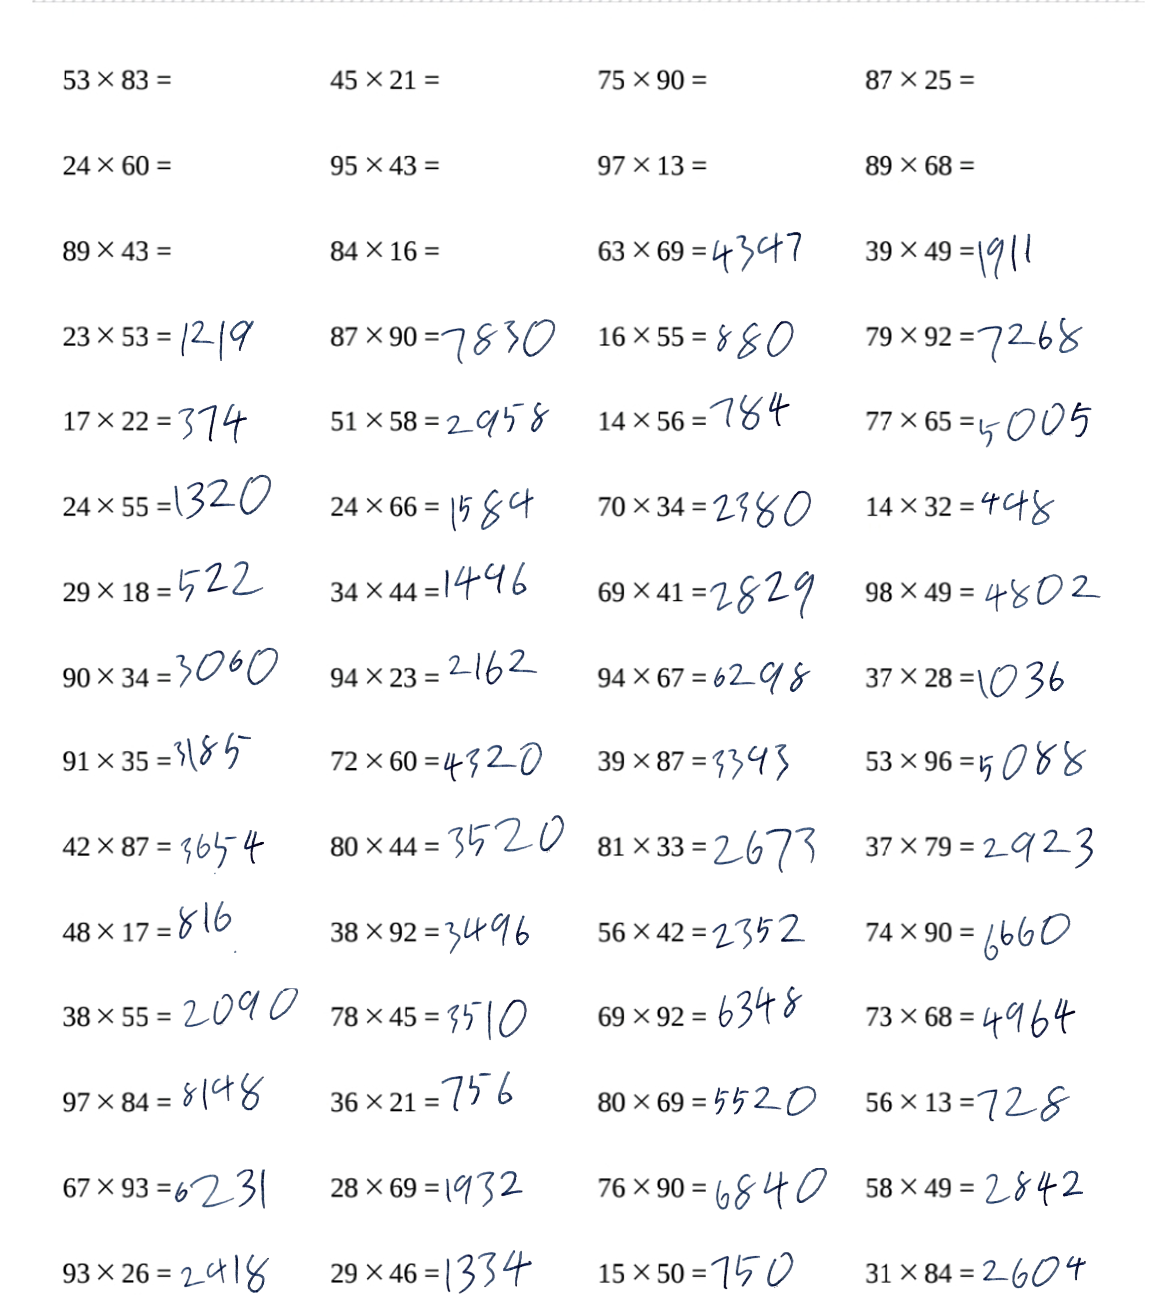 53 × 83 = 45 × 21 = 75 × 90 = 87 × 25 =
24 × 60 = 95 × 43 = 97 × 13 = 89 × 68 =
89 × 43 = 84 × 16 = 63 × 69 = 4347 39 × 49 = 1911
23 × 53 = 1219 87 × 90 = 7830 16 × 55 = 880 79 × 92 = 7268
17 × 22 = 374 51 × 58 = 2958 14 × 56 = 784 77 × 65 = 5005
24 × 55 = 1320 24 × 66 = 1584 70 × 34 = 2380 14 × 32 = 448
29 × 18 = 522 34 × 44 = 1496 69 × 41 = 2829 98 × 49 = 4802
90 × 34 = 3060 94 × 23 = 2162 94 × 67 = 6298 37 × 28 = 1036
91 × 35 = 3185 72 × 60 = 4320 39 × 87 = 3393 53 × 96 = 5088
42 × 87 = 3654 80 × 44 = 3520 81 × 33 = 2673 37 × 79 = 2923
48 × 17 = 816 38 × 92 = 3496 56 × 42 = 2352 74 × 90 = 6660
38 × 55 = 2090 78 × 45 = 3510 69 × 92 = 6348 73 × 68 = 4964
97 × 84 = 8148 36 × 21 = 756 80 × 69 = 5520 56 × 13 = 728
67 × 93 = 6231 28 × 69 = 1932 76 × 90 = 6840 58 × 49 = 2842
93 × 26 = 2418 29 × 46 = 1334 15 × 50 = 750 31 × 84 = 2604